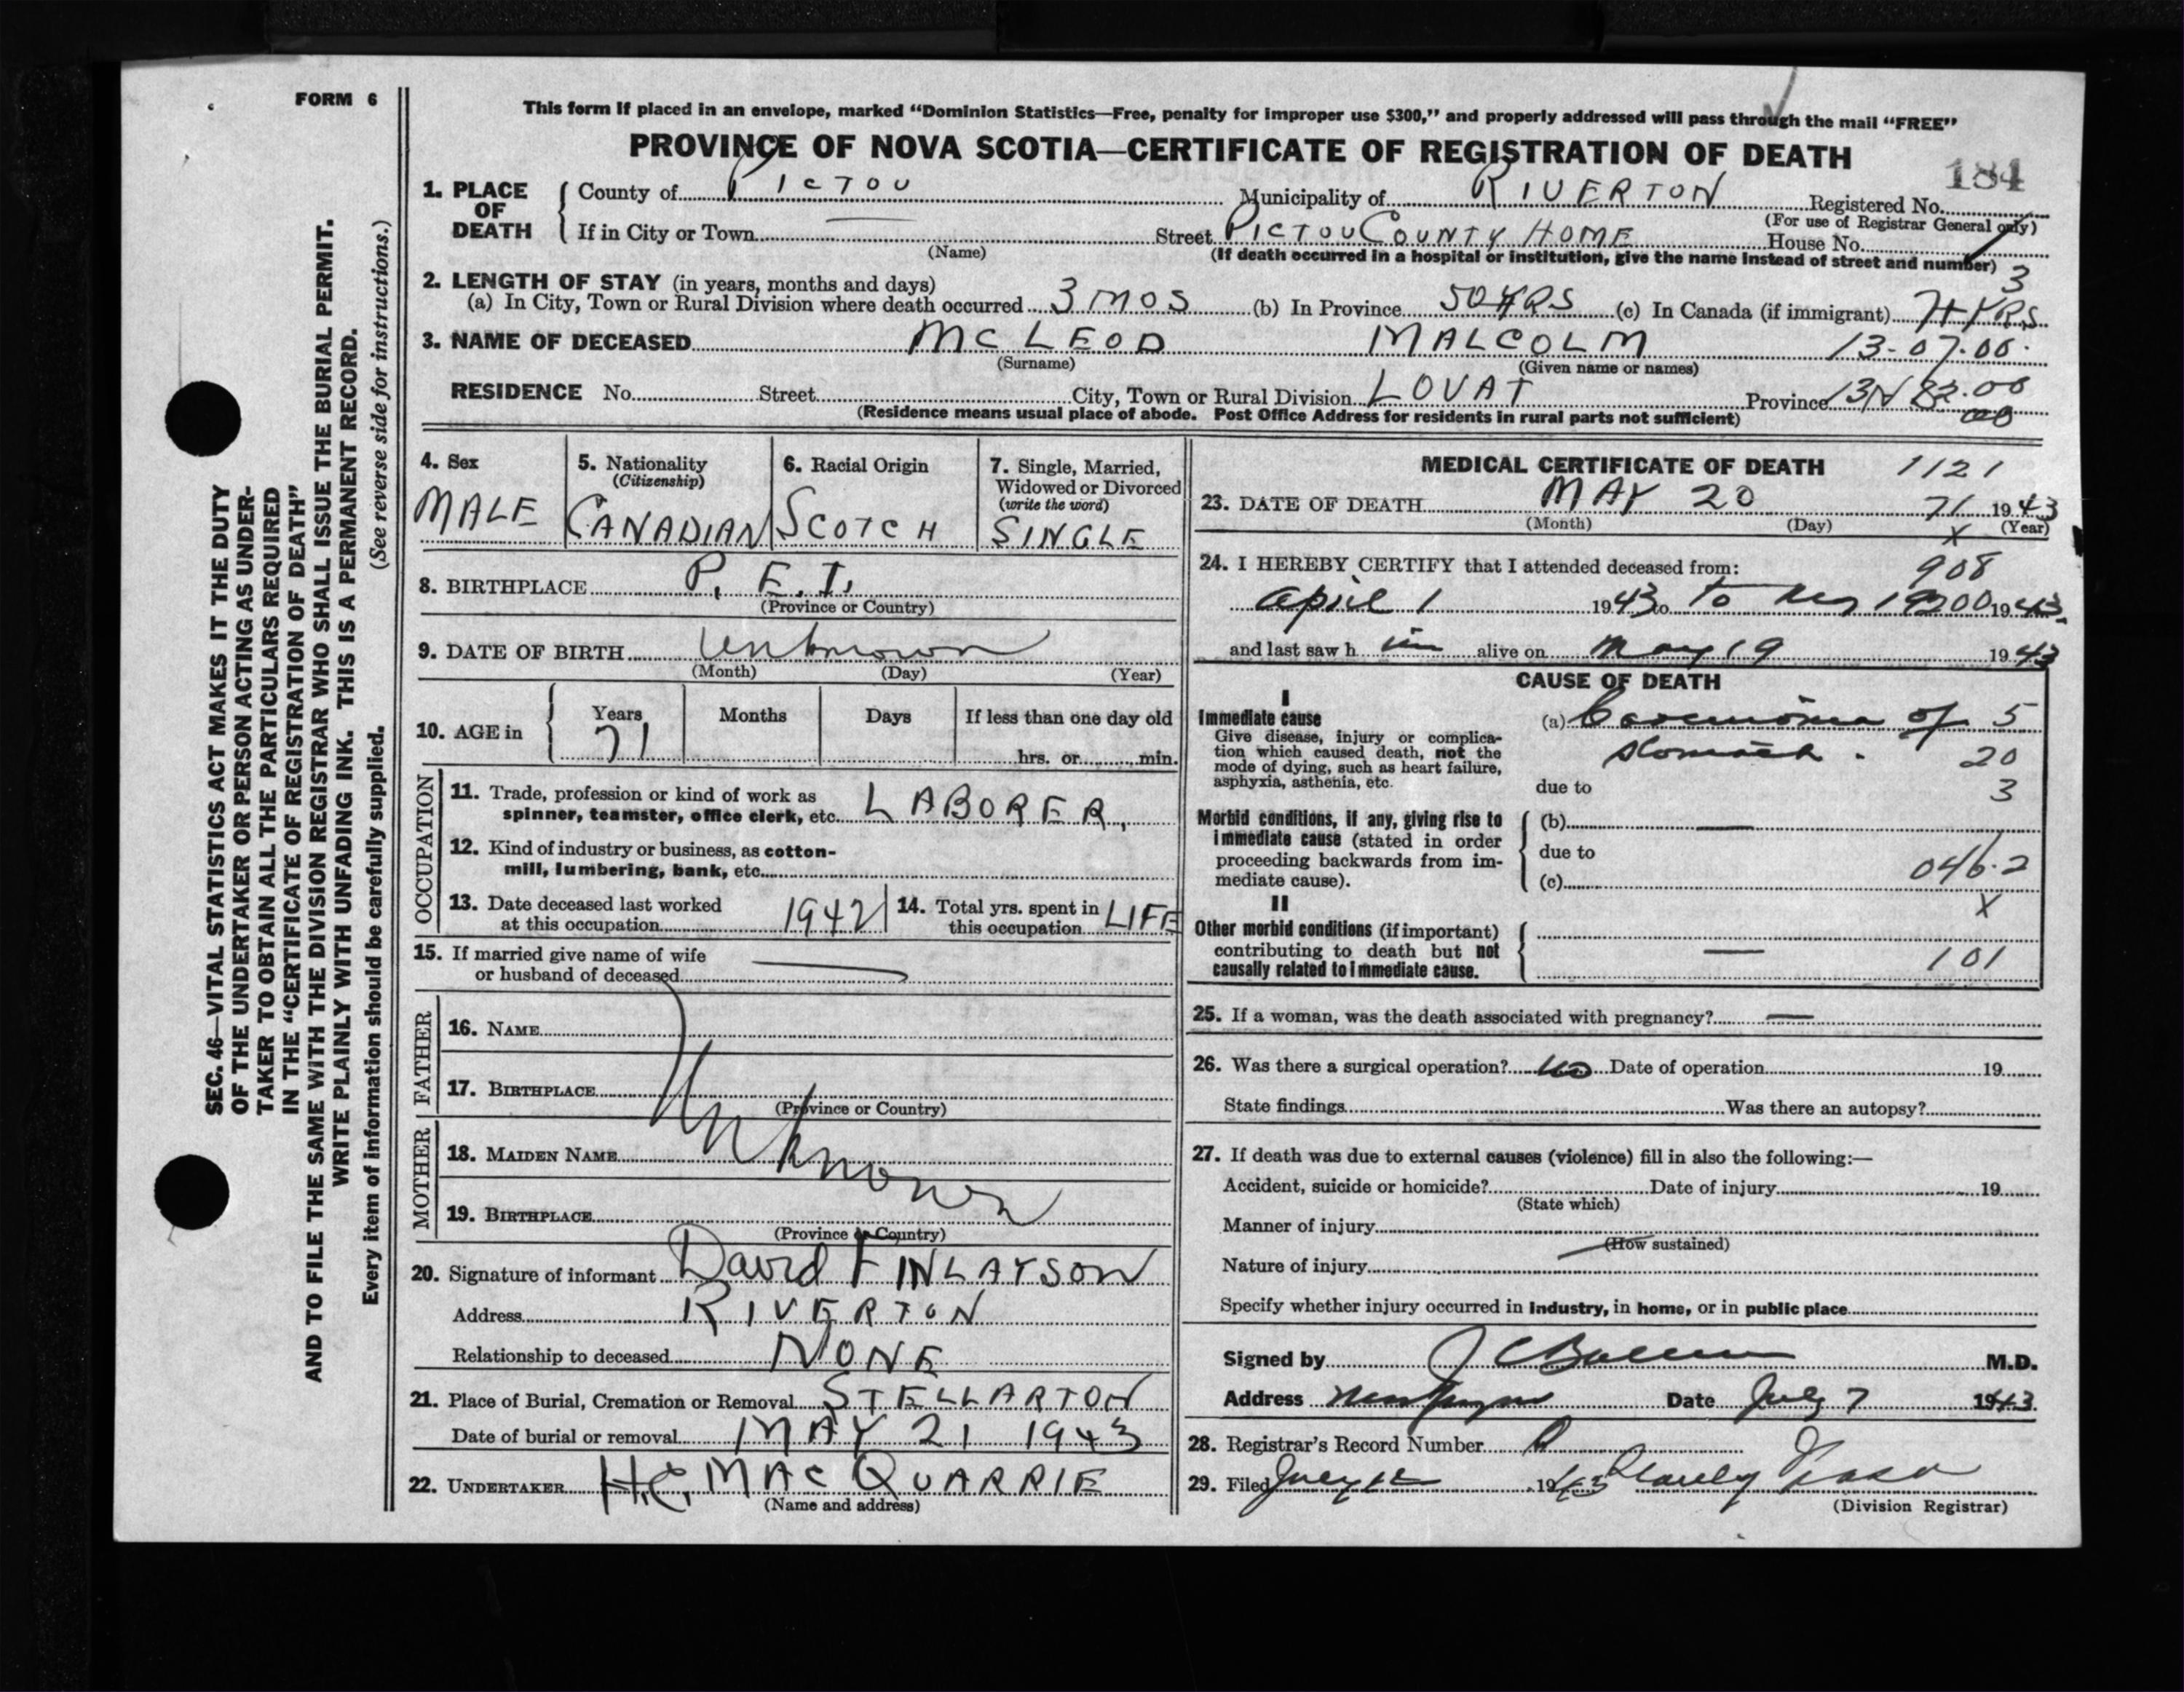 FORM 6
This form if placed in an envelope, marked "Dominion Statistics—Free, penalty for improper use $300," and properly addressed will pass through the mail "FREE"
PROVINCE OF NOVA SCOTIA—CERTIFICATE OF REGISTRATION OF DEATH
184
1. PLACE OF DEATH
County of PICTOU Municipality of RIVERTON Registered No.
(For use of Registrar General only)
If in City or Town — Street PICTOU COUNTY HOME House No.
(Name) (If death occurred in a hospital or institution, give the name instead of street and number)
3
2. LENGTH OF STAY (in years, months and days)
(a) In City, Town or Rural Division where death occurred 3 MOS (b) In Province 50 YRS (c) In Canada (if immigrant) 71 YRS
3. NAME OF DECEASED MCLEOD MALCOLM 13-07-00
(Surname) (Given name or names)
RESIDENCE No. Street City, Town or Rural Division LOVAT Province
(Residence means usual place of abode. Post Office Address for residents in rural parts not sufficient)
4. Sex
MALE
5. Nationality
(Citizenship)
CANADIAN
6. Racial Origin
SCOTCH
7. Single, Married,
Widowed or Divorced
(write the word)
SINGLE
8. BIRTHPLACE P. E. I.
(Province or Country)
9. DATE OF BIRTH Unknown
(Month) (Day) (Year)
10. AGE in
Years Months Days If less than one day old
71 hrs. or min.
OCCUPATION
11. Trade, profession or kind of work as
spinner, teamster, office clerk, etc. LABORER,
12. Kind of industry or business, as cotton-
mill, lumbering, bank, etc.
13. Date deceased last worked
at this occupation 1942
14. Total yrs. spent in
this occupation LIFE
15. If married give name of wife
or husband of deceased —
FATHER
16. NAME
17. BIRTHPLACE
(Province or Country)
Unknown
MOTHER
18. MAIDEN NAME
19. BIRTHPLACE
(Province or Country)
20. Signature of informant David FINLAYSON
Address RIVERTON
Relationship to deceased NONE
21. Place of Burial, Cremation or Removal STELLARTON
Date of burial or removal MAY 21 1943
22. UNDERTAKER H.C. MACQUARRIE
(Name and address)
MEDICAL CERTIFICATE OF DEATH 1121
23. DATE OF DEATH MAY 20 71 1943
(Month) (Day) X (Year)
24. I HEREBY CERTIFY that I attended deceased from: 908
April 1 1943 to to 1943.
and last saw h im alive on May 19 1943
CAUSE OF DEATH
I
Immediate cause
Give disease, injury or complica-
tion which caused death, not the
mode of dying, such as heart failure,
asphyxia, asthenia, etc.
(a) Carcinoma of 5
stomach. 20
due to 3
Morbid conditions, if any, giving rise to
immediate cause (stated in order
proceeding backwards from im-
mediate cause).
(b) —
due to
(c) 046.2
X
II
Other morbid conditions (if important)
contributing to death but not
causally related to immediate cause.
— 101
25. If a woman, was the death associated with pregnancy? —
26. Was there a surgical operation? no Date of operation 19
State findings Was there an autopsy?
27. If death was due to external causes (violence) fill in also the following:—
Accident, suicide or homicide? Date of injury 19
(State which)
Manner of injury
(How sustained)
Nature of injury
Specify whether injury occurred in Industry, in home, or in public place
Signed by J C M.D.
Address Date July 7 1943.
28. Registrar's Record Number
29. Filed July 12 1943
(Division Registrar)
SEC. 46—VITAL STATISTICS ACT MAKES IT THE DUTY
OF THE UNDERTAKER OR PERSON ACTING AS UNDER-
TAKER TO OBTAIN ALL THE PARTICULARS REQUIRED
IN THE "CERTIFICATE OF REGISTRATION OF DEATH"
AND TO FILE THE SAME WITH THE DIVISION REGISTRAR WHO SHALL ISSUE THE BURIAL PERMIT.
WRITE PLAINLY WITH UNFADING INK. THIS IS A PERMANENT RECORD.
Every item of information should be carefully supplied. (See reverse side for instructions.)